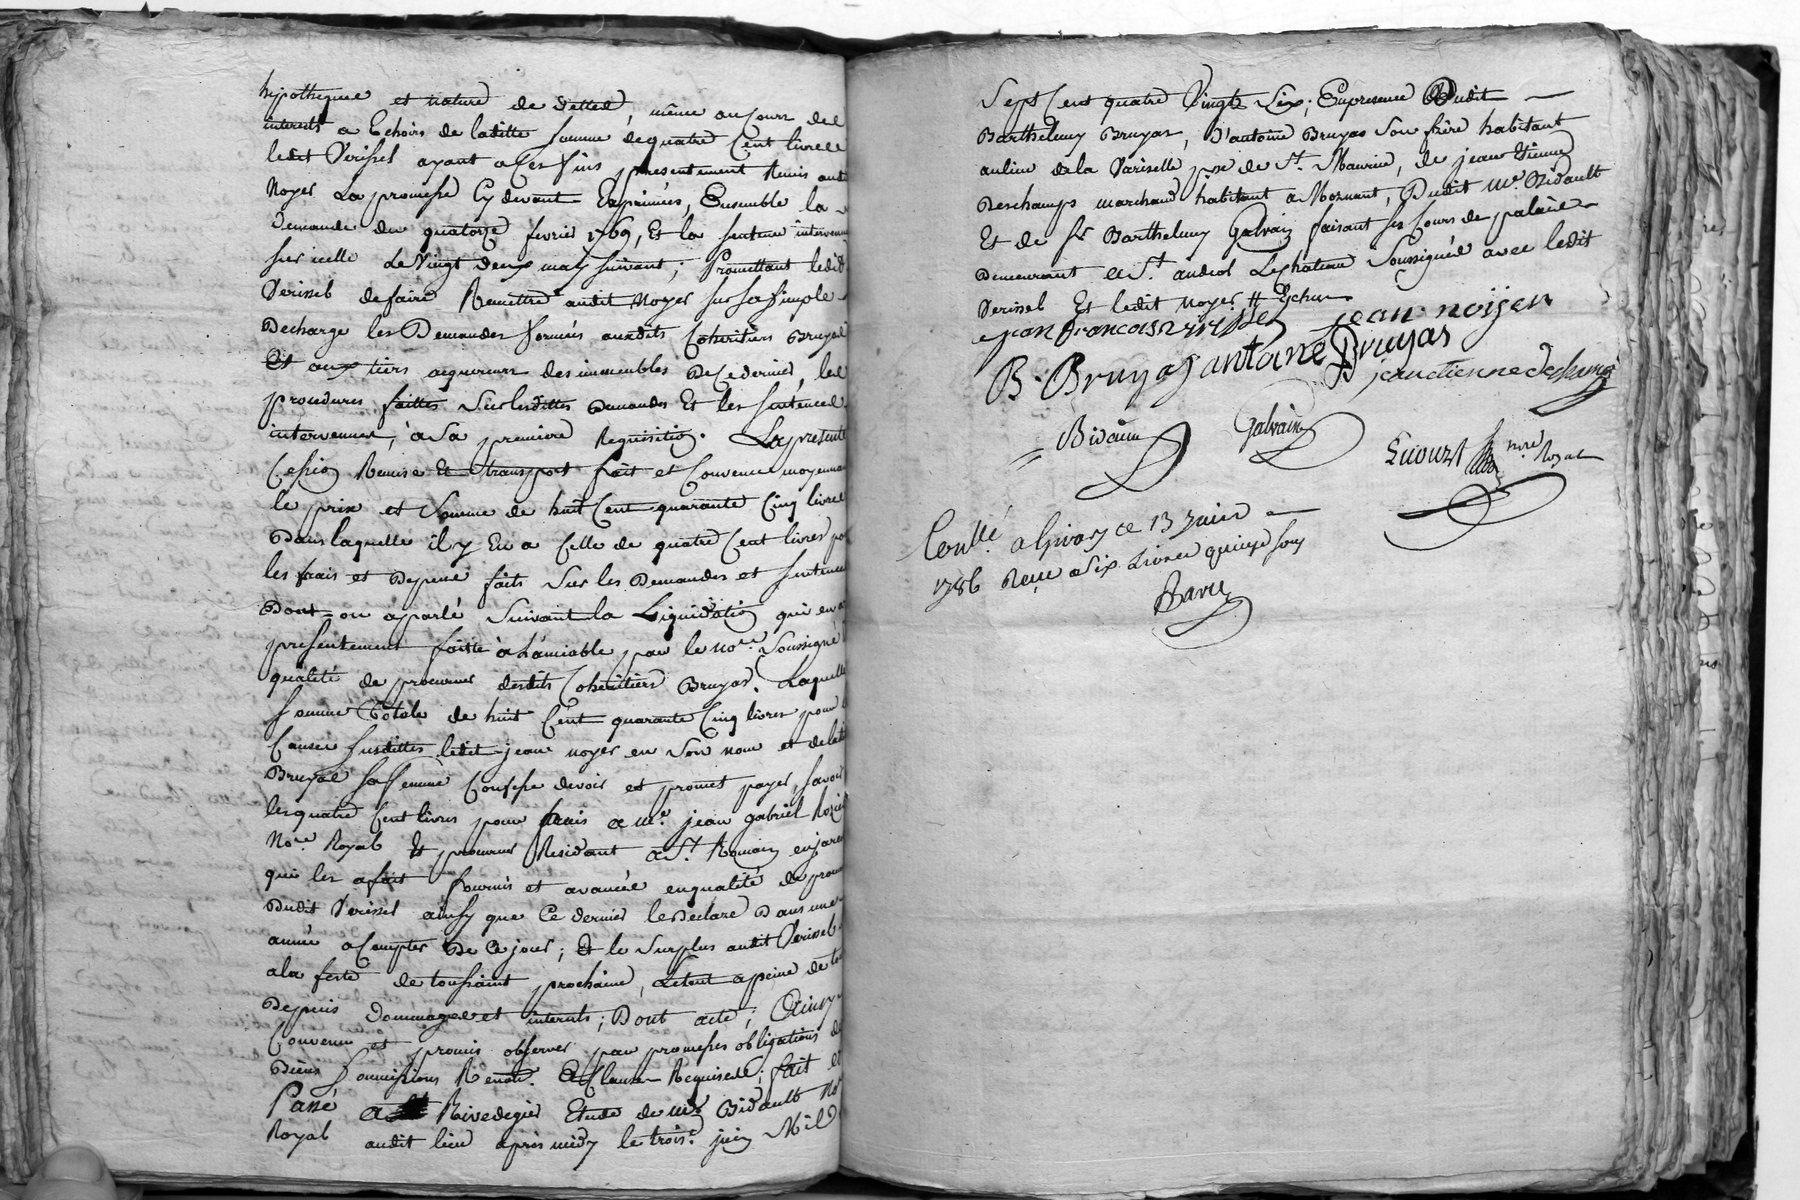 hipotheque et nature de dettes, même au cours des
interets a Echoirs de laditte somme de quatre Cent livres
ledit Verissel ayant a Ces fins presentement Remis audit
Noyer La promesse Cy devant Exprimées, Ensemble la
demande du quatorze fevrier 1769, Et la sentence intervenue
sur icelle Le Vingt deux may suivant; Promettant ledit
Verissel de faire Remettre audit Noyer sur sa simple
Decharge les Demandes formées auxdits Coheritiers Bruyas
Et aux tiers acquereurs des immeubles De Ce dernier, les
procedures faittes Sur lesdittes Demandes Et les sentences
intervenues, à Sa premiere Requisition. La presente
Cession Remise Et transport fait et Convenue moyennant
le prix et Somme de huit Cent quarante Cinq livres
Dans laquelle il y En a Celle de quatre Cent livres pour
les frais et Depens faits Sur les Demandes et sentences
Dont on a parlé Suivant la Liquidation qui en a
presentement faitte à L'amiable par le no.re Soussigné
qualité de procureur desdits Coheritiers Bruyas. Laquelle
somme Totale de huit Cent quarante Cinq livres pour
Causes susdittes ledit jean noyer en Son nom et de la
Bruyas sa femme Confesse devoir et promet payer, savoir
les quatre Cent livres pour frais a me. jean gabriel
No.re Royal Et procureur Residant a St. Romain en jarez
qui les a fait fournis et avancée en qualité de
Dudit Verissel ainsy que Ce dernier le Declare Dans une
année a Compter De Ce jour; Et le Surplus audit Verissel
a la feste de toussaint prochaine, Le tout a peine de tous
Depuis dommages et interets; Dont acte; Ainsy
Convenu et promis observer par promesses obligations de
Biens soumissions Renon. Et Clauses Requises; fait et
Passé a Rivedegier Etude de me Bidault No.
Royal audit lieu apres midy le trois.e juin Mil
Sept Cent quatre Vingt Six; En presence Dudit
Barthelemy Bruyas, D'antoine Bruyas Son frère habitant
au lieu de la Variselle p.sse de St. Maurice, de jean Etienne
Deschamps marchand habitant a Mornant, Dudit me. Bidault
Et de sr Barthelemy Galvain faisant ses Cours de palais
Demeurant a St. andeol Le chateau Soussignés avec ledit
Verissel Et ledit noyer
jean francois verissel jean noijer
B. Bruyas antoine Bruyas
jean etienne deschamps
Bidault Galvain
no.re Royal
Con.llé a Givors ce 13 juin
1786 Reçu Six Livres quinze sous